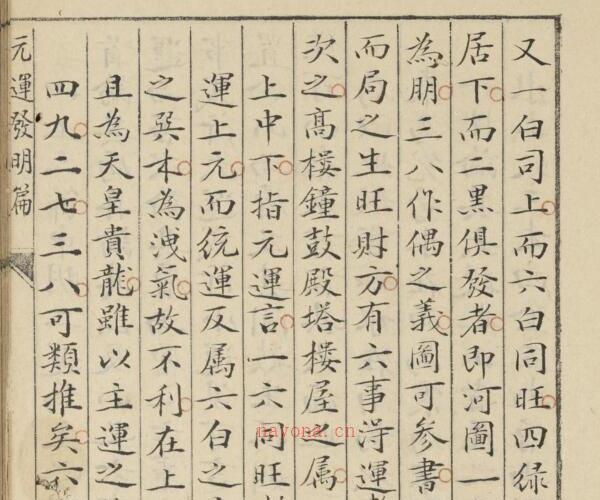 又一白司上而六白同旺四绿
居下而二黑俱發者即河圖一
為朋三八作偶之義圖可参書
而局之生旺財方有六事淂運
次之高樓鐘鼓殿塔樓屋之属
上中下指元運言一六同旺
運上元而統運反属六白之
之巽木為洩氣故不利在上
且為天皇貴龍雖以主運之
四九二七三八可類推矣六
元運發明篇
nayona.cn